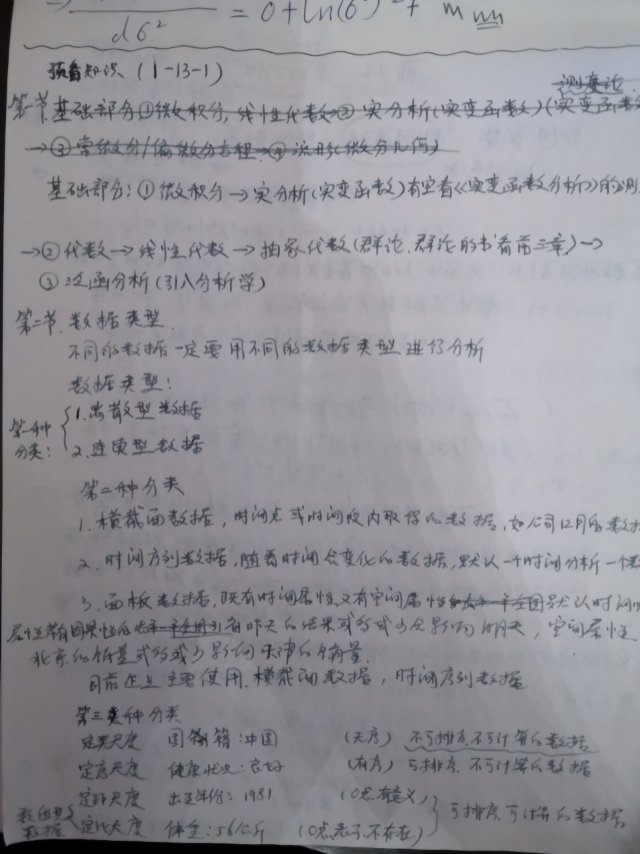 dσ² = 0 + ln(6)² +
预备知识 (1-13-1)
测度论
第一节.基础部分①微积分,线性代数→②实分析(实变函数)(实变函数
→③常微分/偏微分方程→④流形(微分几何)
基础部分:①微积分→实分析(实变函数)有空看《实变函数分析》的测
→②代数→线性代数→抽象代数(群论.群论的书看前三章)→
③泛函分析(引入分析学)
第二节.数据类型
不同的数据一定要用不同的数据类型进行分析
数据类型:
第一种分类:
1.离散型数据
2.连续型数据
第二种分类
1.横截面数据,时间点或时间段内取得的数据,如公司12月的数据
2.时间序列数据,随着时间会变化的数据,默认一个时间分析一个数
3.面板数据,既有时间属性又有空间属性默认时间
属性带有因果性的昨天的结果或多或少会影响明天,空间属性
北京的销量或多或少影响天津的销量.
目前在上主要使用.横截面数据,时间序列数据
第三种分类
定类尺度 国籍:中国 (无序) 不可排序.不可计算的数据
定序尺度 健康状况:良好 (有序) 可排序.不可计算的数据
定距尺度 出生年份:1981 (0点有意义)
可排序.可计算的数据
数值型数据 定比尺度 体重:56公斤 (0点表示不存在)